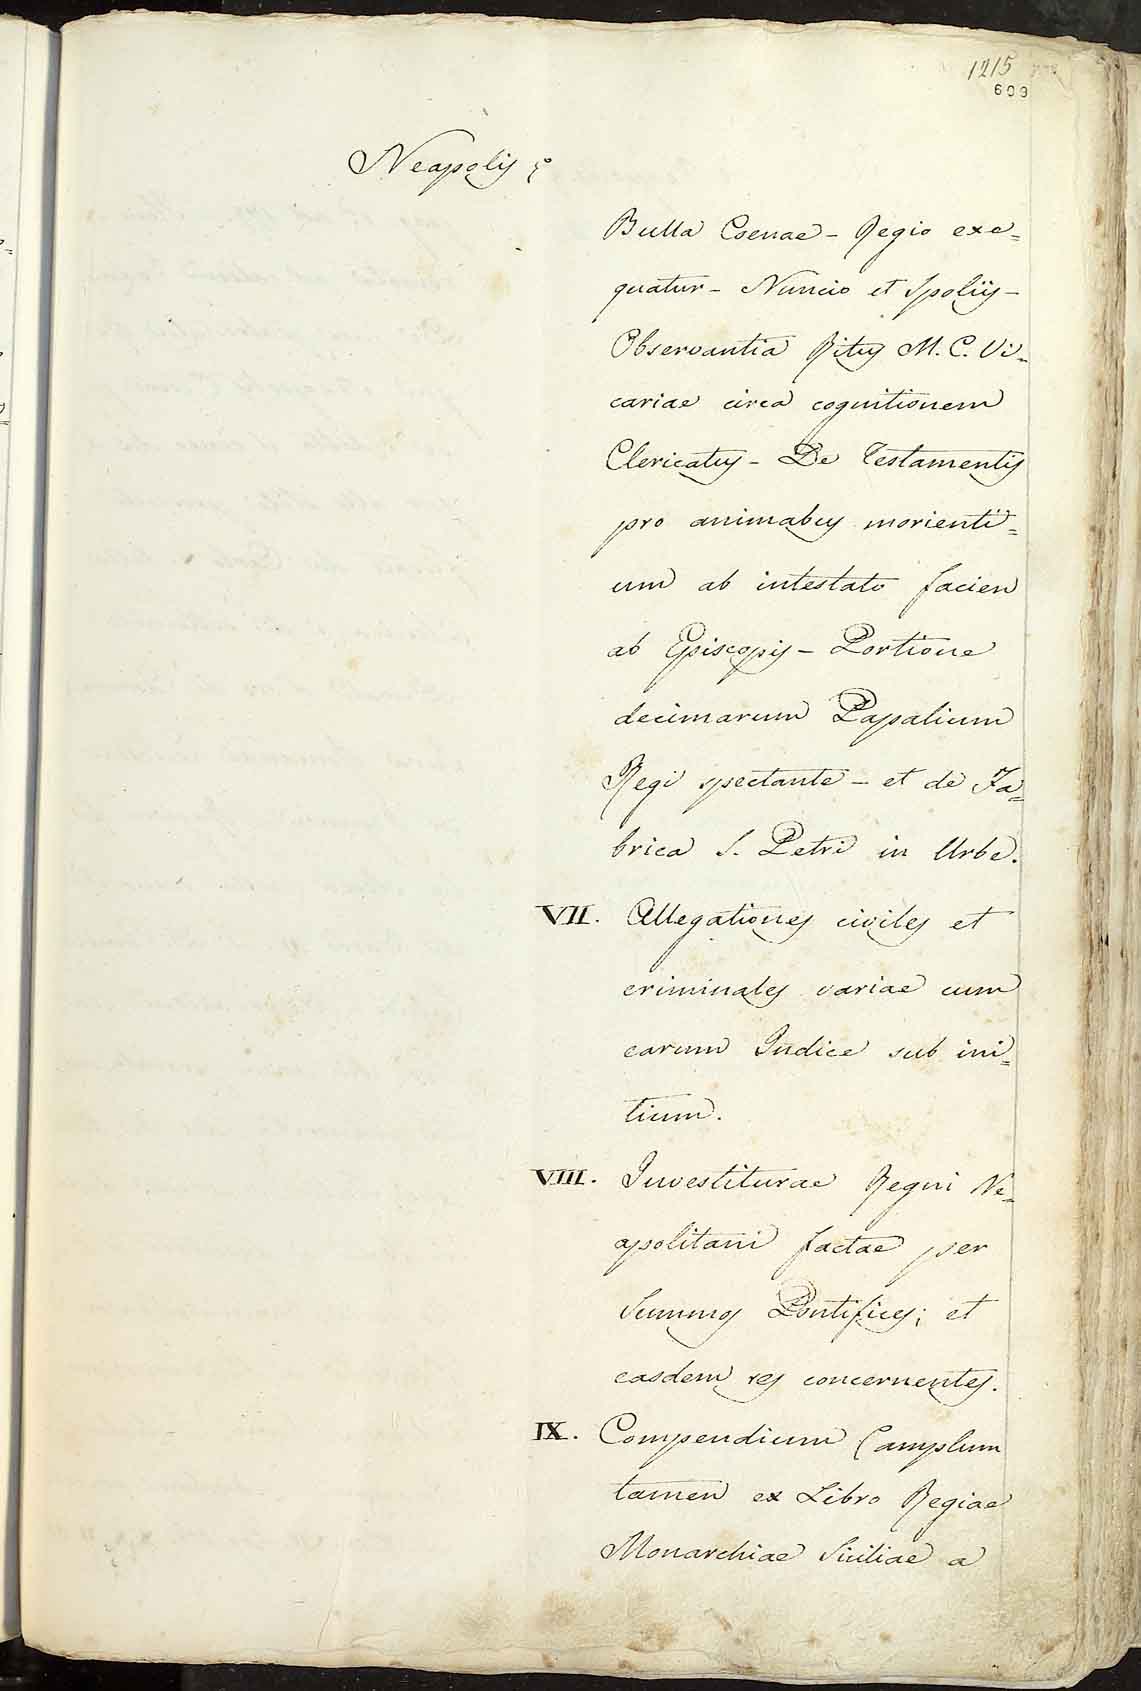 1215
609
Neapolis
Bulla Coenae - Regio exe=
quatur - Nuncio et Spoliis -
Observantia Ritus M. C. Vi=
cariae circa cognitionem
Clericatus - De Testamentis
pro animabus morienti=
um ab intestato facien
ab Episcopis - Portione
decimarum Papalium
Regi spectante - et de Fa=
brica S. Petri in Urbe.
VII. Allegationes civiles et
criminales variae cum
earum Indice sub ini=
tium.
VIII. Investiturae Regni Ne=
apolitani factae per
Summos Pontifices; et
easdem res concernentes.
IX. Compendium (amplum
tamen ex Libro Regiae
Monarchiae Siciliae a